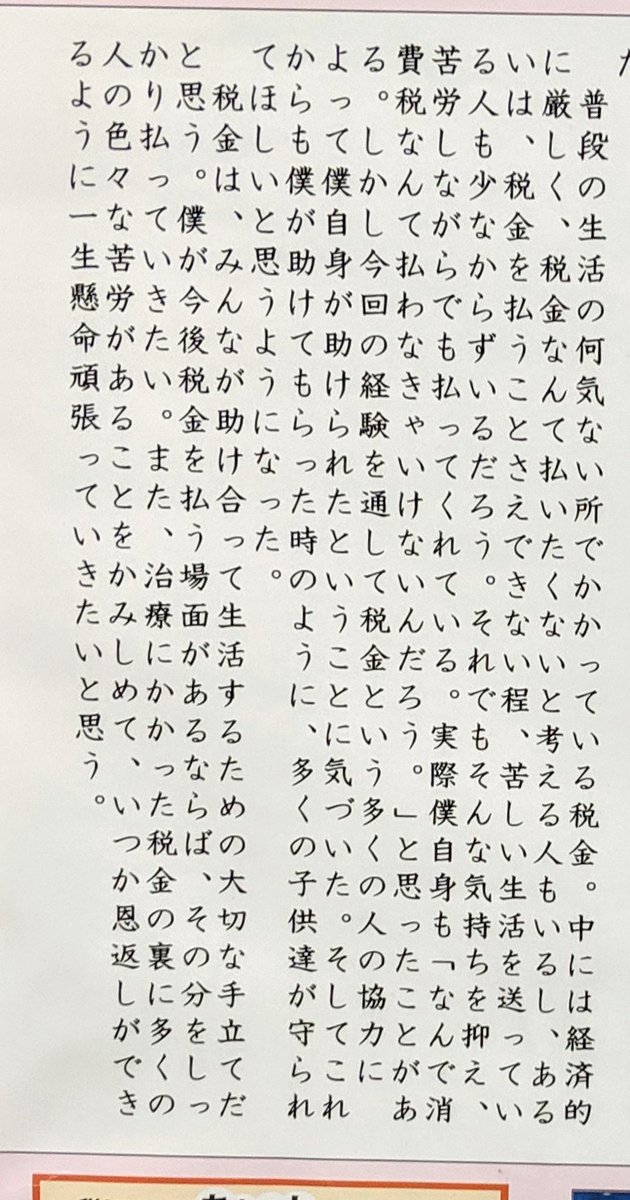 た
普段の生活の何気ない所でかかっている税金。中には経済的
に厳しく、税金なんて払いたくないと考える人もいるし、ある
いは、税金を払うことさえできない程、苦しい生活を送ってい
る人も少なからずいるだろう。それでもそんな気持ちを抑え、
苦労しながらでも払ってくれている。実際僕自身も「なんで消
費税なんて払わなきゃいけないんだろう。」と思ったことがあ
る。しかし今回の経験を通して税金という多くの人の協力に
よって僕自身が助けられたということに気づいた。そしてこれ
からも僕が助けてもらった時のように、多くの子供達が守られ
てほしいと思うようになった。
税金は、みんなが助け合って生活するための大切な手立てだ
と思う。僕が今後税金を払う場面があるならば、その分をしっ
かり払っていきたい。また、治療にかかった税金の裏に多くの
人の色々な苦労があることをかみしめて、いつか恩返しができ
るように一生懸命頑張っていきたいと思う。